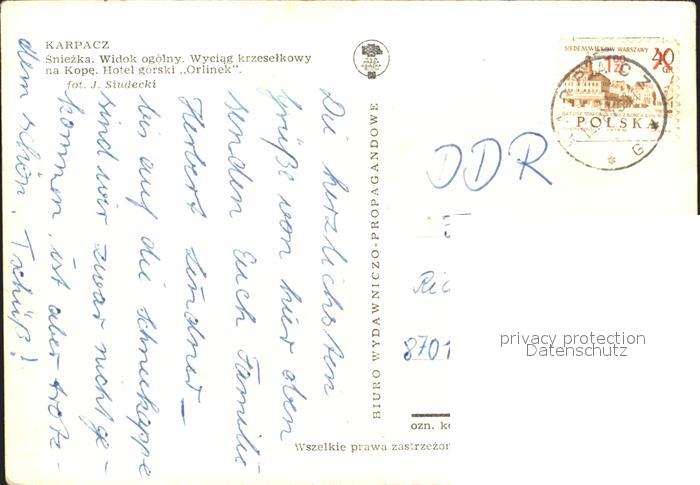 KARPACZ
Śnieżka. Widok ogólny. Wyciąg krzesełkowy
na Kopę. Hotel górski „Orlinek".
fot. J. Siudecki
Die herzlichsten
Grüße von hier oben
senden Euch Familie
Herbert Lindner –
bis auf die Schneekoppe
sind wir zwar nicht ge-
kommen, ist aber trotz-
dem schön. Tschüß!
BIURO WYDAWNICZO-PROPAGANDOWE
SIEDEM WIEKÓW WARSZAWY
40
GR
POLSKA
KARPACZ
G
DDR
5
Ric
8701
privacy protection
Datenschutz
ozn. ko
Wszelkie prawa zastrzeżon